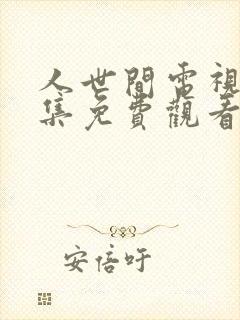 人世間電視
集免費觀看
安倍吁